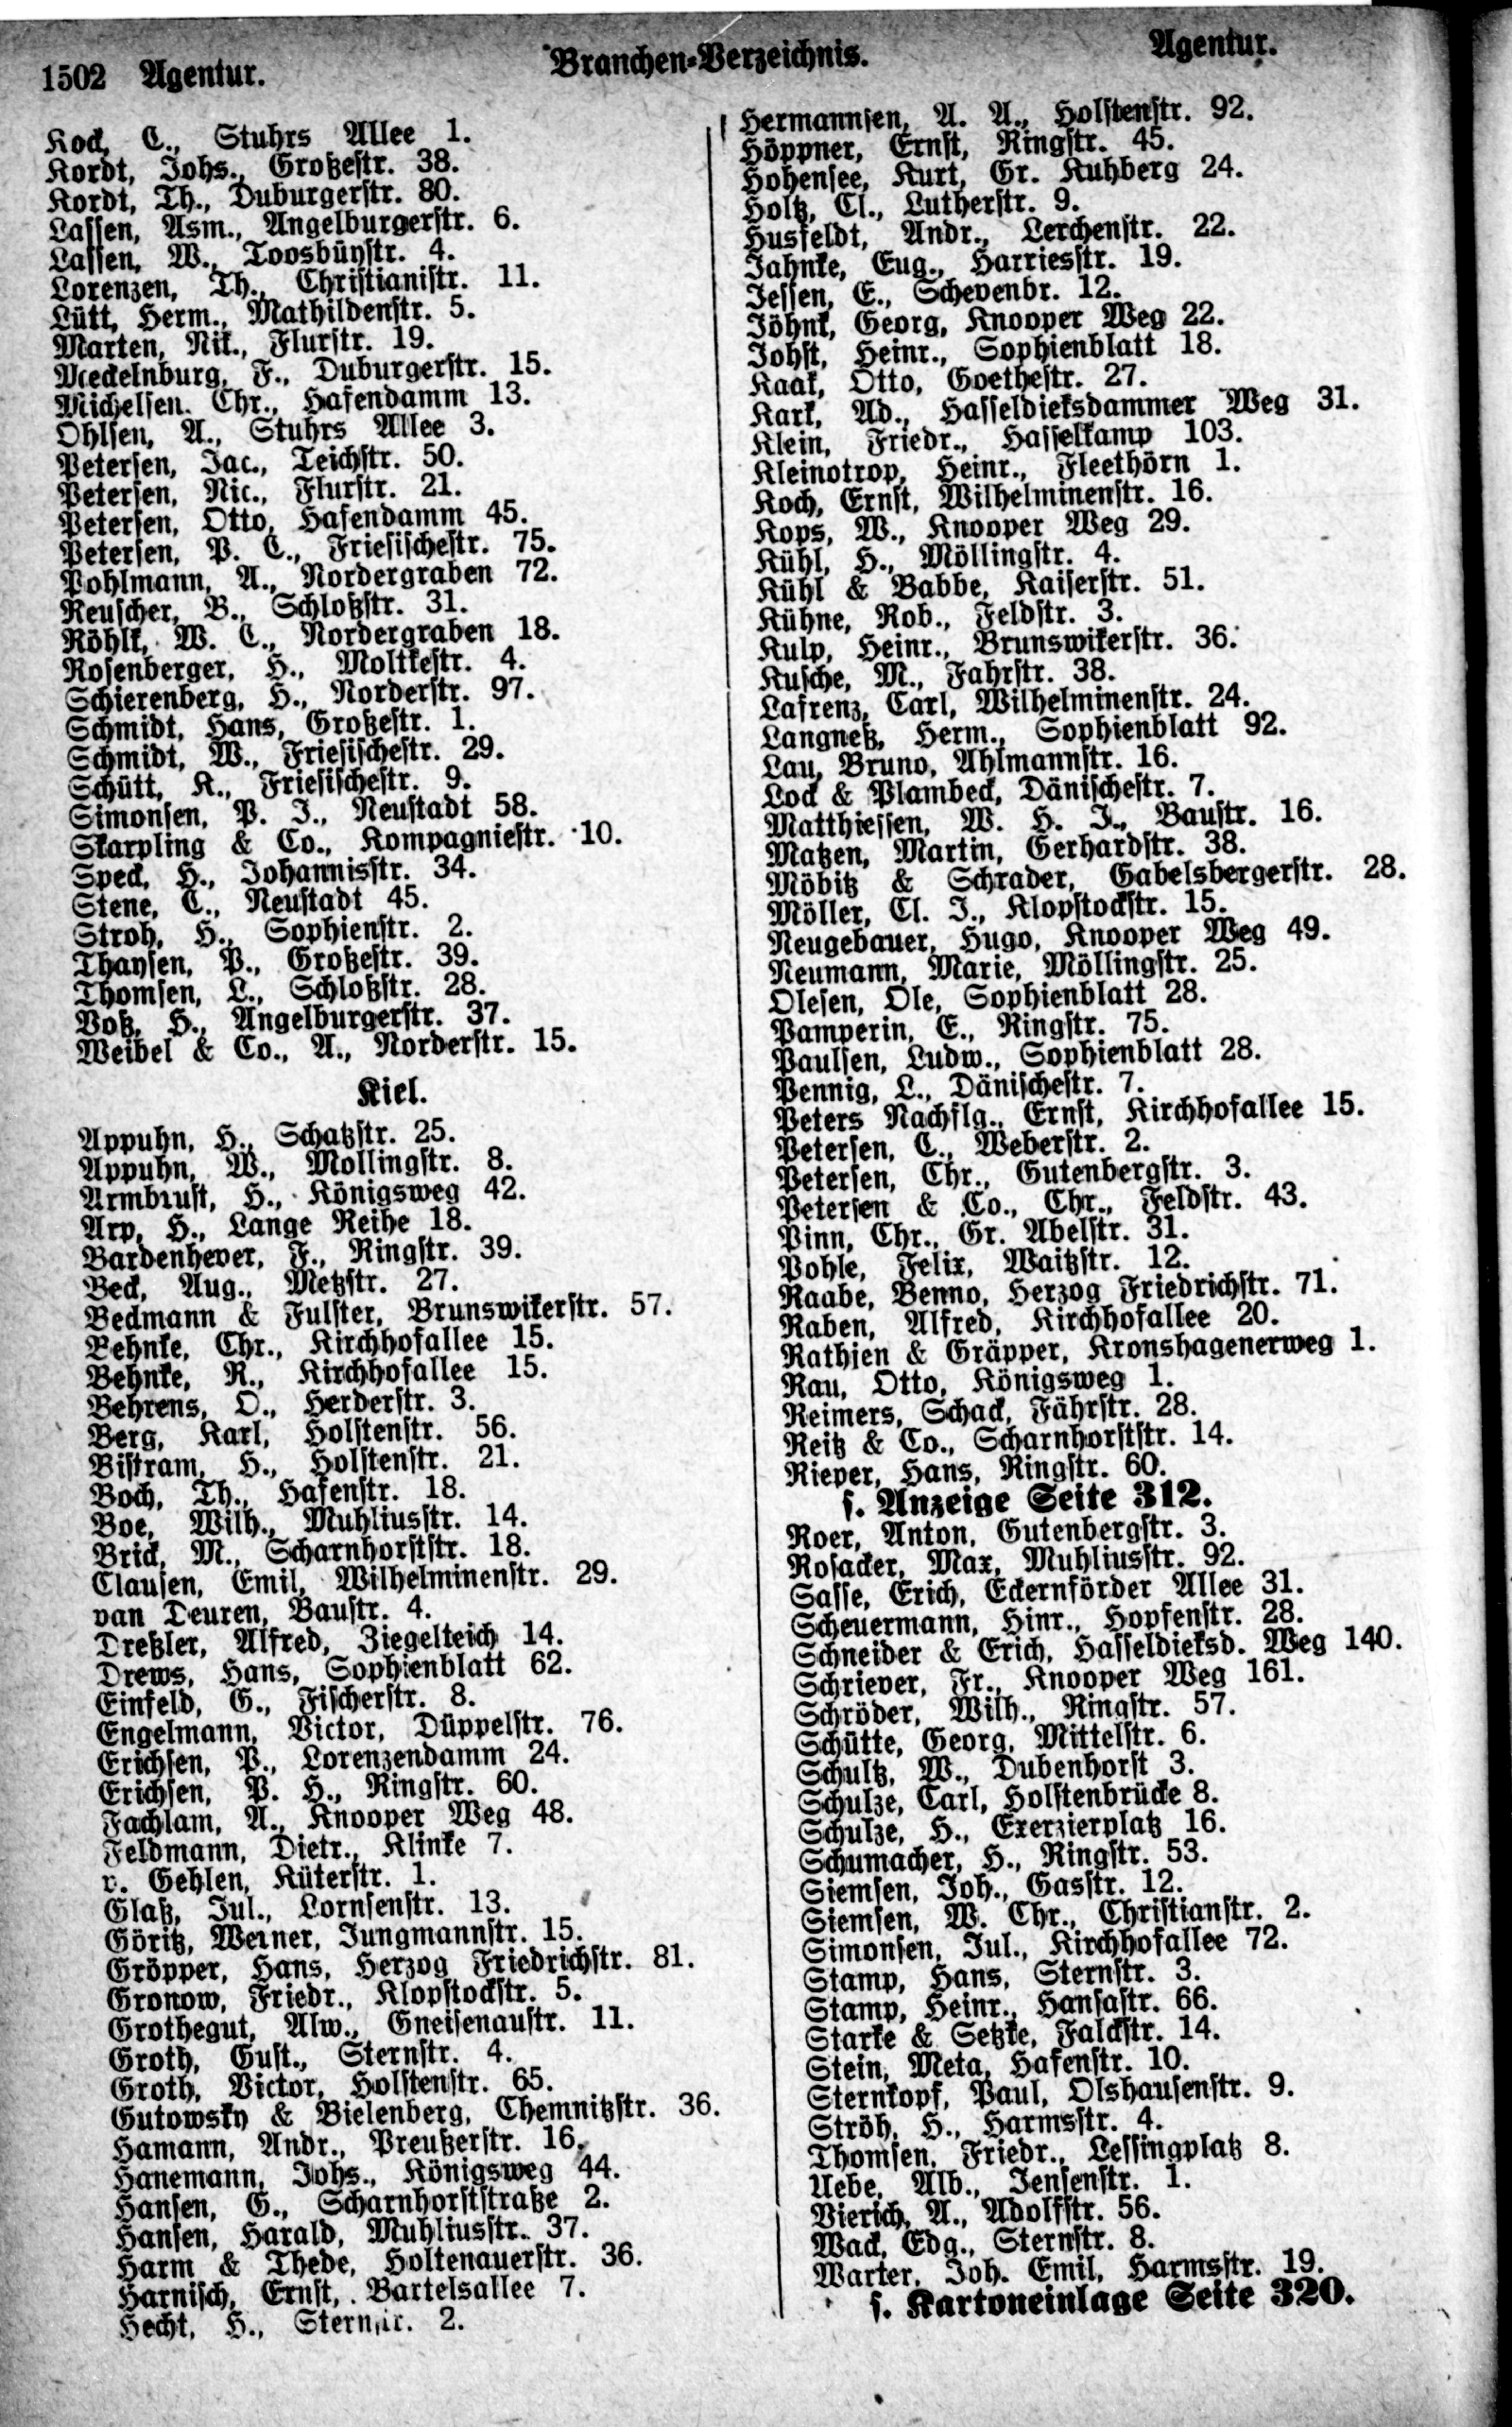 1502 Agentur.
Branchen-Verzeichnis.
Agentur.
Kock, C., Stuhrs Allee 1.
Kordt, Johs., Großestr. 38.
Kordt, Th., Duburgerstr. 80.
Lassen, Asm., Angelburgerstr. 6.
Lassen, W., Toosbüystr. 4.
Lorenzen, Th., Christianistr. 11.
Lütt, Herm., Mathildenstr. 5.
Marten, Nik., Flurstr. 19.
Meckelnburg, F., Duburgerstr. 15.
Michelsen. Chr., Hafendamm 13.
Ohlsen, A., Stuhrs Allee 3.
Petersen, Jac., Teichstr. 50.
Petersen, Nic., Flurstr. 21.
Petersen, Otto, Hafendamm 45.
Petersen, P. C., Friesischestr. 75.
Pohlmann, A., Nordergraben 72.
Reuscher, B., Schloßstr. 31.
Röhlk, W. C., Nordergraben 18.
Rosenberger, H., Moltkestr. 4.
Schierenberg, H., Norderstr. 97.
Schmidt, Hans, Großestr. 1.
Schmidt, W., Friesischestr. 29.
Schütt, K., Friesischestr. 9.
Simonsen, P. J., Neustadt 58.
Skarpling & Co., Kompagniestr. 10.
Speck, H., Johannisstr. 34.
Stene, C., Neustadt 45.
Stroh, H., Sophienstr. 2.
Thaysen, P., Großestr. 39.
Thomsen, L., Schloßstr. 28.
Voß, H., Angelburgerstr. 37.
Weibel & Co., A., Norderstr. 15.
Kiel.
Appuhn, H., Schatzstr. 25.
Appuhn, W., Mollingstr. 8.
Armbrust, H., Königsweg 42.
Arp, H., Lange Reihe 18.
Bardenhever, F., Ringstr. 39.
Beck, Aug., Metzstr. 27.
Beckmann & Fulster, Brunswikerstr. 57.
Behnke, Chr., Kirchhofallee 15.
Behnke, R., Kirchhofallee 15.
Behrens, O., Herderstr. 3.
Berg, Karl, Holstenstr. 56.
Bistram, H., Holstenstr. 21.
Boch, Th., Hafenstr. 18.
Boe, Wilh., Muhliusstr. 14.
Brick, M., Scharnhorststr. 18.
Clausen, Emil, Wilhelminenstr. 29.
van Deuren, Baustr. 4.
Dreßler, Alfred, Ziegelteich 14.
Drews, Hans, Sophienblatt 62.
Einfeld, G., Fischerstr. 8.
Engelmann, Victor, Düppelstr. 76.
Erichsen, P., Lorenzendamm 24.
Erichsen, P. H., Ringstr. 60.
Fachlam, A., Knooper Weg 48.
Feldmann, Dietr., Klinke 7.
v. Gehlen, Küterstr. 1.
Glaß, Jul., Lornsenstr. 13.
Göritz, Werner, Jungmannstr. 15.
Gröpper, Hans, Herzog Friedrichstr. 81.
Gronow, Friedr., Klopstockstr. 5.
Grothegut, Alw., Gneisenaustr. 11.
Groth, Gust., Sternstr. 4.
Groth, Victor, Holstenstr. 65.
Gutowsky & Bielenberg, Chemnitzstr. 36.
Hamann, Andr., Preußerstr. 16.
Hanemann, Johs., Königsweg 44.
Hansen, G., Scharnhorststraße 2.
Hansen, Harald, Muhliusstr. 37.
Harm & Thede, Holtenauerstr. 36.
Harnisch, Ernst, Bartelsallee 7.
Hecht, H., Sternstr. 2.
Hermannsen, A. A., Holstenstr. 92.
Höppner, Ernst, Ringstr. 45.
Hohensee, Kurt, Gr. Kuhberg 24.
Holtz, Cl., Lutherstr. 9.
Husfeldt, Andr., Lerchenstr. 22.
Jahnke, Eug., Harriesstr. 19.
Jessen, E., Schevenbr. 12.
Jöhnk, Georg, Knooper Weg 22.
Johst, Heinr., Sophienblatt 18.
Kaak, Otto, Goethestr. 27.
Kark, Ad., Hasseldieksdammer Weg 31.
Klein, Friedr., Hasselkamp 103.
Kleinotrop, Heinr., Fleethörn 1.
Koch, Ernst, Wilhelminenstr. 16.
Kops, W., Knooper Weg 29.
Kühl, H., Möllingstr. 4.
Kühl & Babbe, Kaiserstr. 51.
Kühne, Rob., Feldstr. 3.
Kulp, Heinr., Brunswikerstr. 36.
Kusche, M., Fahrstr. 38.
Lafrenz, Carl, Wilhelminenstr. 24.
Langneß, Herm., Sophienblatt 92.
Lau, Bruno, Ahlmannstr. 16.
Lock & Plambeck, Dänischestr. 7.
Matthiessen, W. H. J., Baustr. 16.
Matzen, Martin, Gerhardstr. 38.
Möbitz & Schrader, Gabelsbergerstr. 28.
Möller, Cl. J., Klopstockstr. 15.
Neugebauer, Hugo, Knooper Weg 49.
Neumann, Marie, Möllingstr. 25.
Olesen, Ole, Sophienblatt 28.
Pamperin, E., Ringstr. 75.
Paulsen, Ludw., Sophienblatt 28.
Pennig, L., Dänischestr. 7.
Peters Nachflg., Ernst, Kirchhofallee 15.
Petersen, C., Weberstr. 2.
Petersen, Chr., Gutenbergstr. 3.
Petersen & Co., Chr., Feldstr. 43.
Pinn, Chr., Gr. Abelstr. 31.
Pohle, Felix, Waitzstr. 12.
Raabe, Benno, Herzog Friedrichstr. 71.
Raben, Alfred, Kirchhofallee 20.
Rathjen & Gräpper, Kronshagenerweg 1.
Rau, Otto, Königsweg 1.
Reimers, Schack, Fährstr. 28.
Reitz & Co., Scharnhorststr. 14.
Rieper, Hans, Ringstr. 60.
s. Anzeige Seite 312.
Roer, Anton, Gutenbergstr. 3.
Rosacker, Max, Muhliusstr. 92.
Sasse, Erich, Eckernförder Allee 31.
Scheuermann, Hinr., Hopfenstr. 28.
Schneider & Erich, Hasseldieksd. Weg 140.
Schriever, Fr., Knooper Weg 161.
Schröder, Wilh., Ringstr. 57.
Schütte, Georg, Mittelstr. 6.
Schultz, W., Dubenhorst 3.
Schulze, Carl, Holstenbrücke 8.
Schulze, H., Exerzierplatz 16.
Schumacher, H., Ringstr. 53.
Siemsen, Joh., Gasstr. 12.
Siemsen, W. Chr., Christianstr. 2.
Simonsen, Jul., Kirchhofallee 72.
Stamp, Hans, Sternstr. 3.
Stamp, Heinr., Hansastr. 66.
Starke & Setzke, Falckstr. 14.
Stein, Meta, Hafenstr. 10.
Sternkopf, Paul, Olshausenstr. 9.
Ströh, H., Harmsstr. 4.
Thomsen, Friedr., Lessingplatz 8.
Uebe, Alb., Jensenstr. 1.
Vierich, A., Adolfstr. 56.
Wack, Edg., Sternstr. 8.
Warter, Joh. Emil, Harmsstr. 19.
s. Kartoneinlage Seite 320.